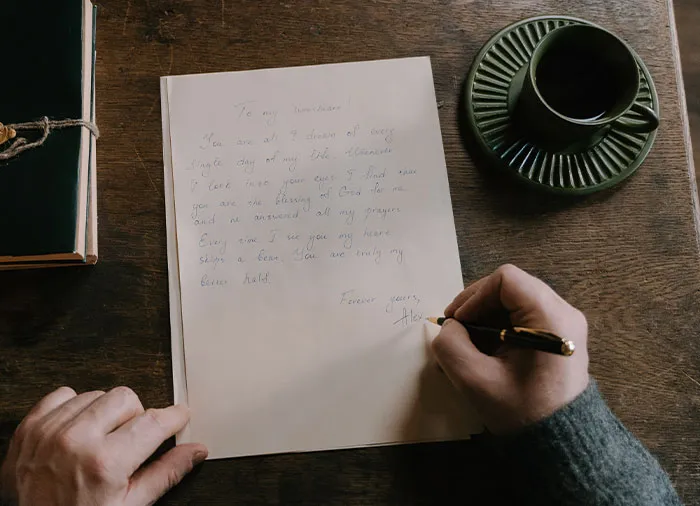 To my
You are all I dream of every
single day of my life. Whenever
I look into your eyes I find
you are the blessing of God to me
and he answered all my prayers
Every time I see you my heart
skips a beat. You are truly my
better half.
Forever yours,
Alex